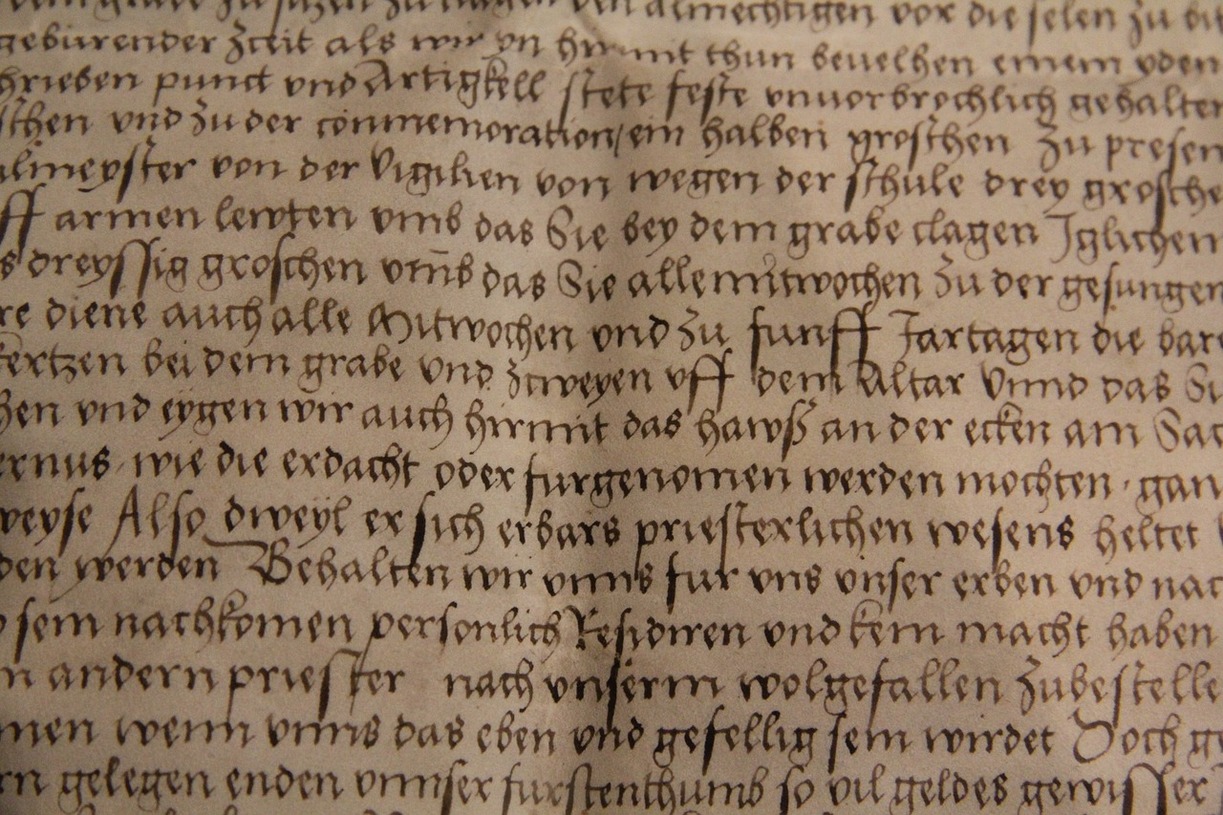 zu sitzen zu den almechtigen vor die selen zu bit
geburender zceit als wir yn hirmit thun beuelhen einem yden
hrieben punct vnd Artigkell stete feste vnuorbrochlich gehalten
schen vnd zu der conmemoration ein halben groschen zu presen
lmeyster von der vigilien von wegen der schule drey grosche
ff armen lewten vmb das Sie bey dem grabe clagen Iglichem
s dreyssig groschen vmb das Sie alle mitwochen zu der gesungen
re diene auch alle Mitwochen vnd zu funff Jartagen die bar
kertzen bei dem grabe vnd zweyen vff dem Altar Vnnd das Si
hen vnd eygen wir auch hirmit das hawß an der ecken am Sac
ernus wie die erdacht oder furgenomen werden mochten gan
weyse Also dweyl er sich erbars priesterlichen wesens heltet
den werden Behalten wir vnns fur vns vnser erben vnd nac
sein nachkomen personlich Residiren vnd kein macht haben
n andern priester nach vnserm wolgefallen zubestelle
men wenn vnns das eben vnd gefellig sein wirdet Doch ge
rn gelegen enden vnnser furstenthumb so vil geldes gewisser